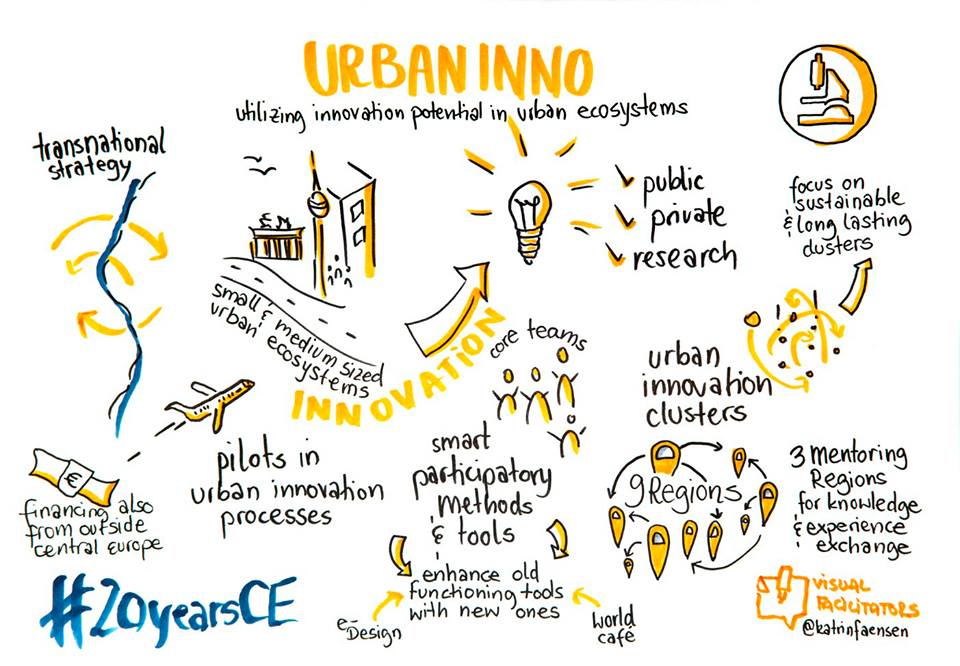 URBAN INNO
utilizing innovation potential in urban ecosystems
transnational
strategy
small & medium sized
urban ecosystems
INNOVATION
public
private
research
focus on
sustainable
& long lasting
clusters
core teams
urban
innovation
clusters
pilots in
urban innovation
processes
smart
participatory
Methods
& tools
enhance old
functioning tools
with new ones
e-
Design
World
café
9 Regions
3 Mentoring
Regions
for knowledge
& experience
exchange
€
financing also
from outside
central europe
#20yearsCE
VISUAL
FACILITATORS
@katrinfaensen